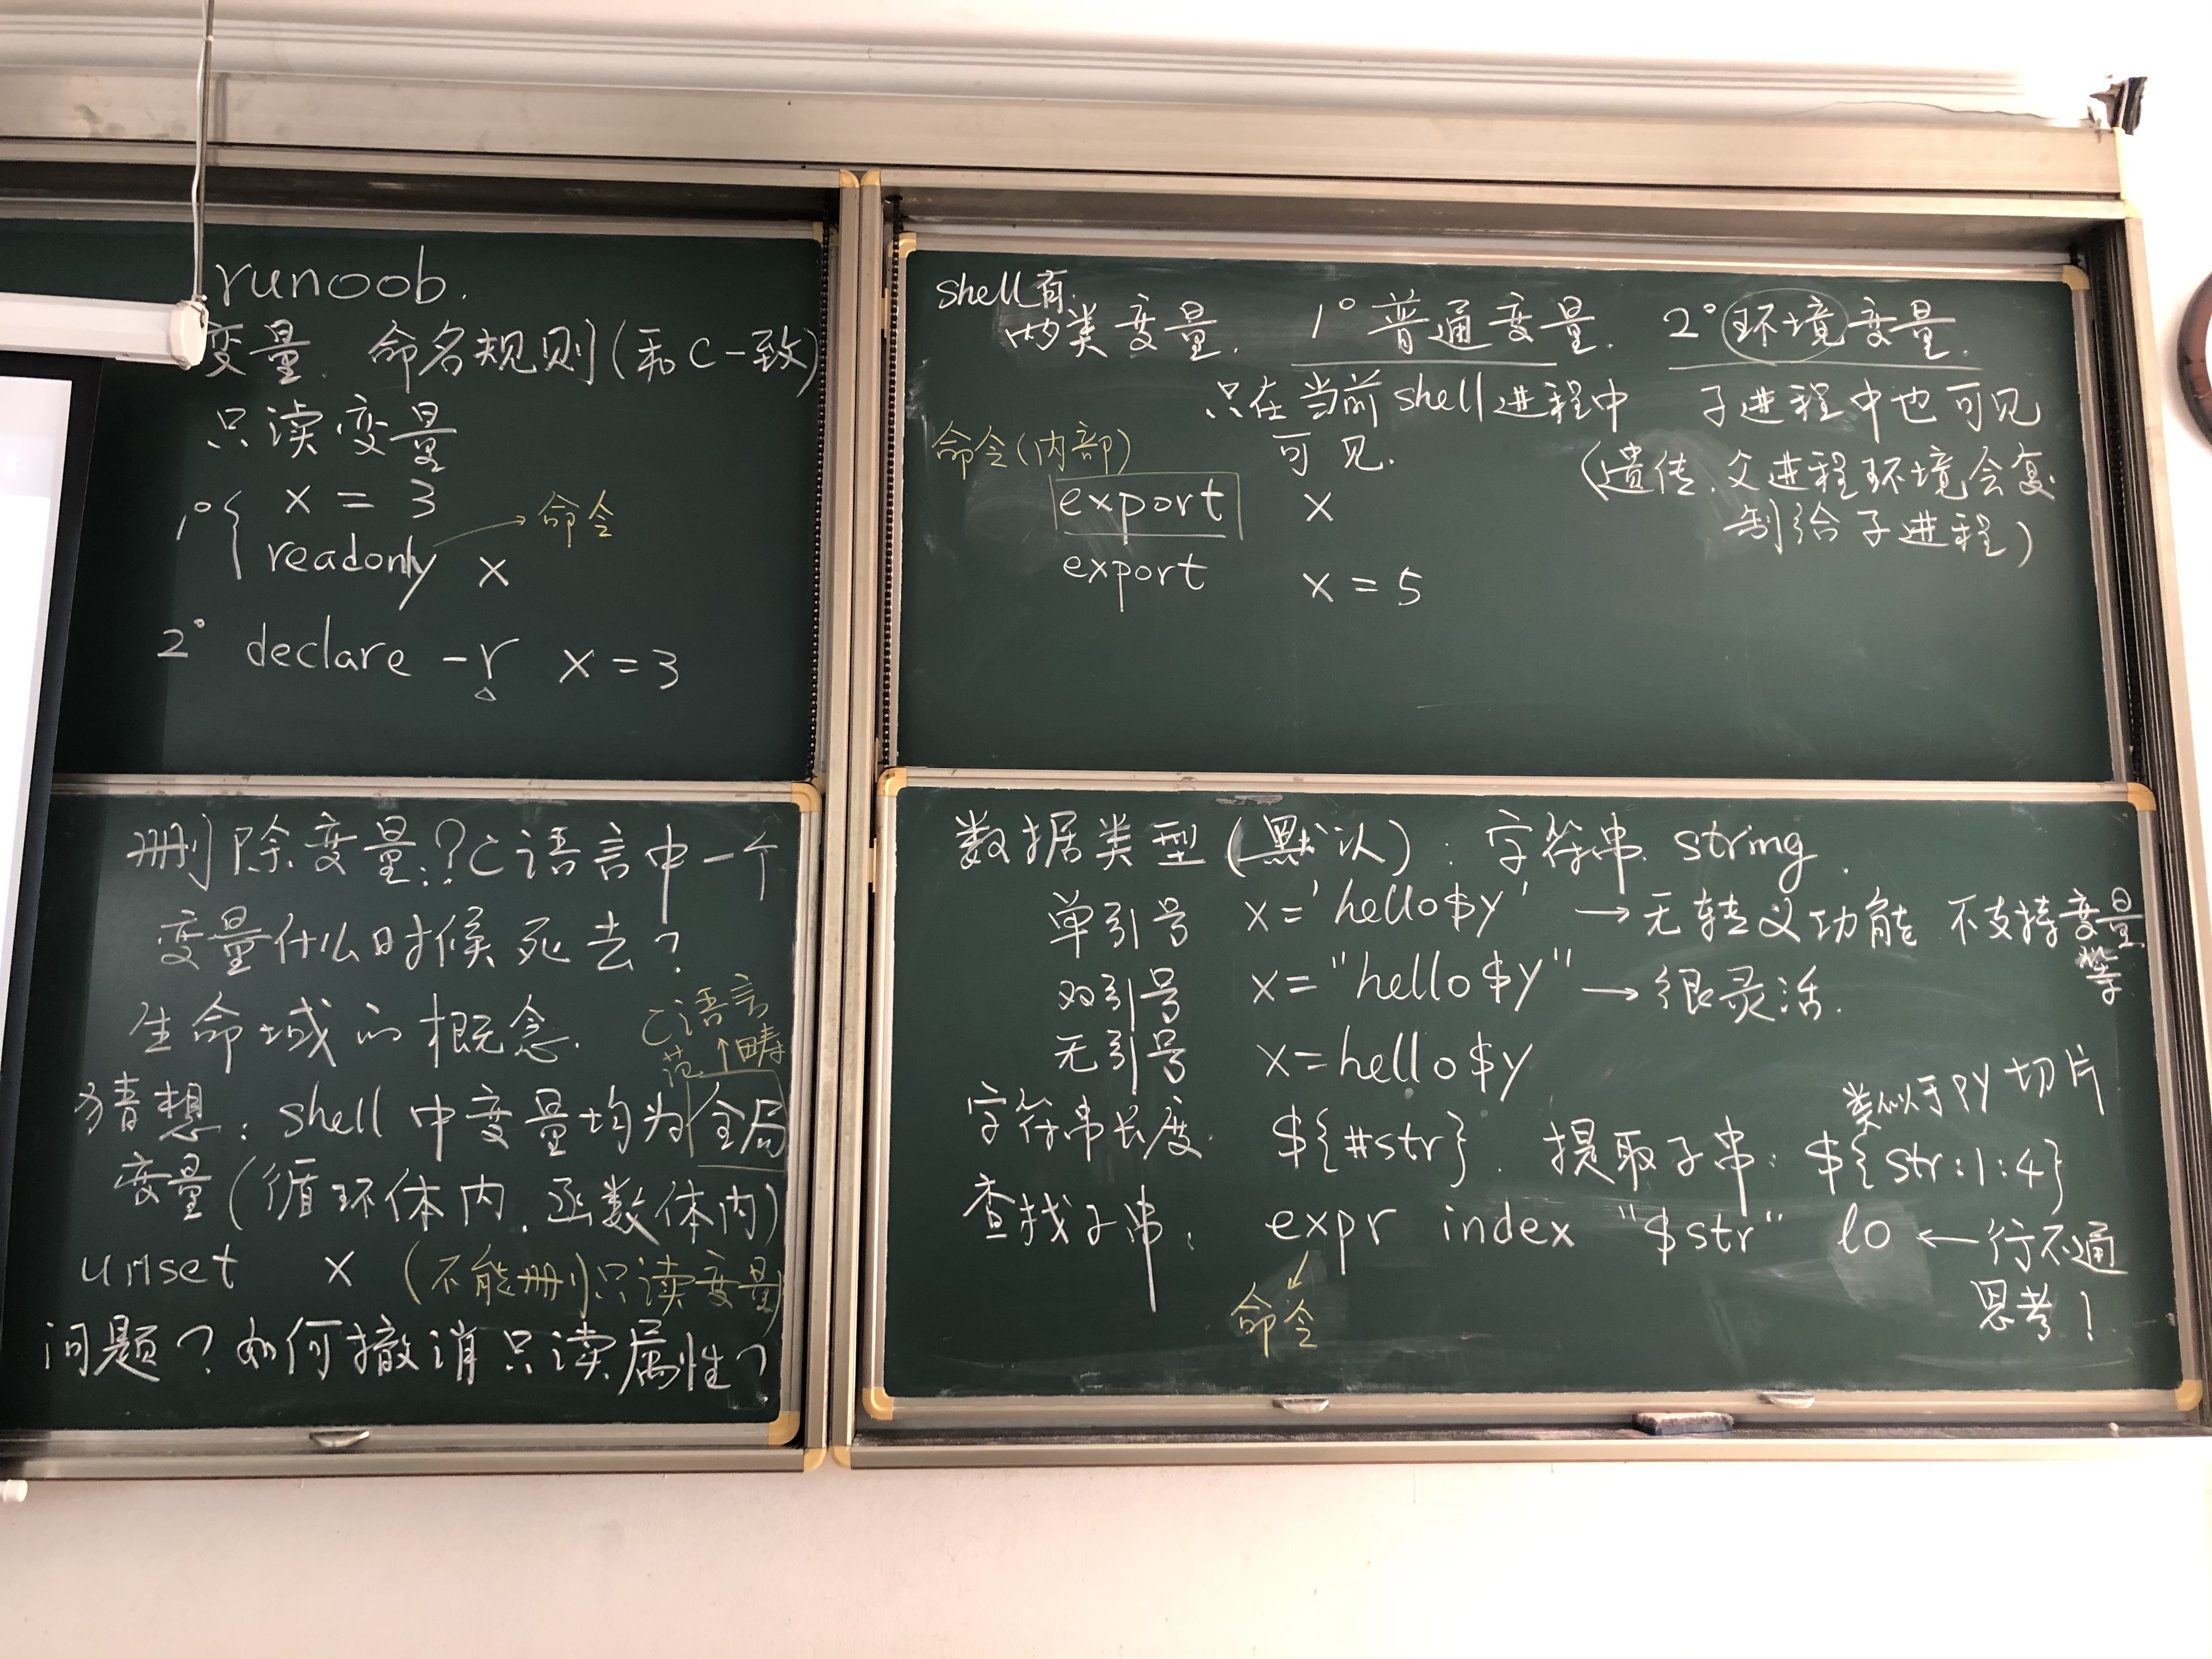 runoob.
变量. 命名规则(和C一致)
只读变量
1° { x = 3
readonly x → 命令
2° declare -r x=3
shell有
两类变量. 1° 普通变量. 2° 环境变量.
只在当前shell进程中 子进程中也可见
可见. (遗传.父进程环境会复
制给子进程)
命令(内部)
export x
export x=5
删除变量:?C语言中一个
变量什么时候死去?
生命域的概念.
C语言
范↑畴
猜想: shell中变量均为全局
变量(循环体内.函数体内)
unset x (不能删)只读变量
问题?如何撤消只读属性?
数据类型(默认): 字符串 string.
单引号 x='hello$y' →无转义功能 不支持变量
等
双引号 x="hello$y" →很灵活.
无引号 x=hello$y
类似于py切片
字符串长度. ${#str}. 提取子串: ${str:1:4}
查找子串: expr index "$str" lo ←行不通
命令
思考!